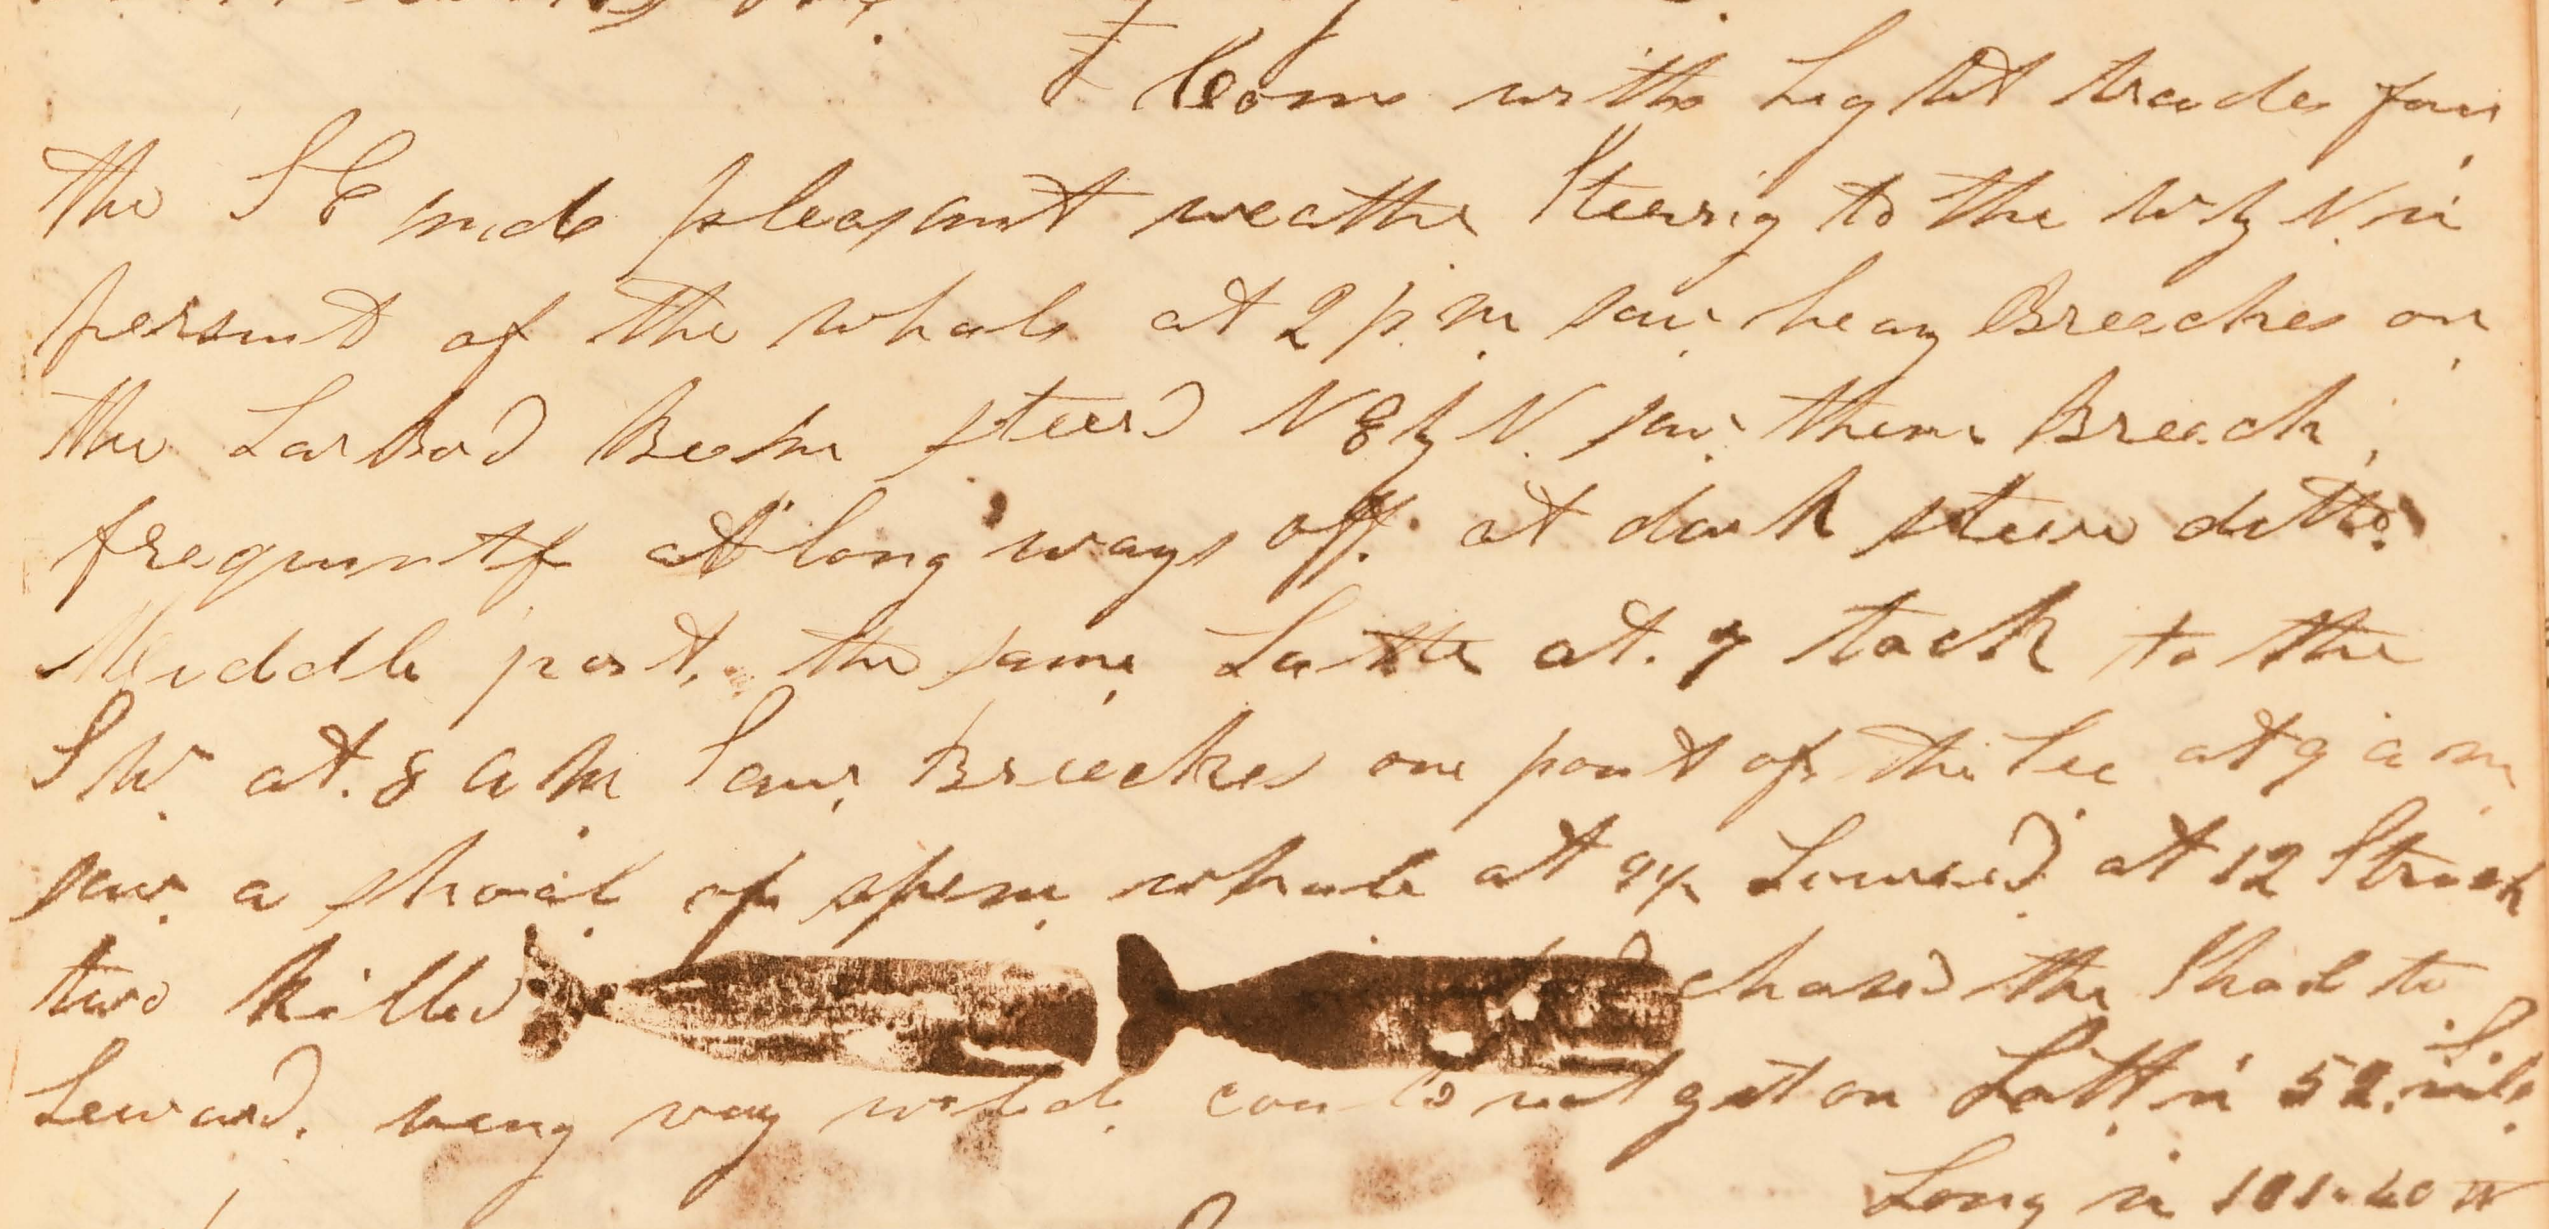 Coms with Light trades from
the S E mide pleasant weather Steering to the W by N. in
persuit of the whale at 2 p. m saw heavy Breeches on
the Larbord Beam steerd N E by N. saw them Breach
frequently at long ways off. at dark steers ditto.
Middle part, the same Latter at. 7 tack to the
S W at. 8 A M Saw Breeches one point of the Lee at 9 a m
saw a shoal of sperm whale at 9½ Lowered at 12 Struck
two killed chased the Shoal to
Leward. being very wild could not get on Latt in 52. mile S.
Long in 101.40 W